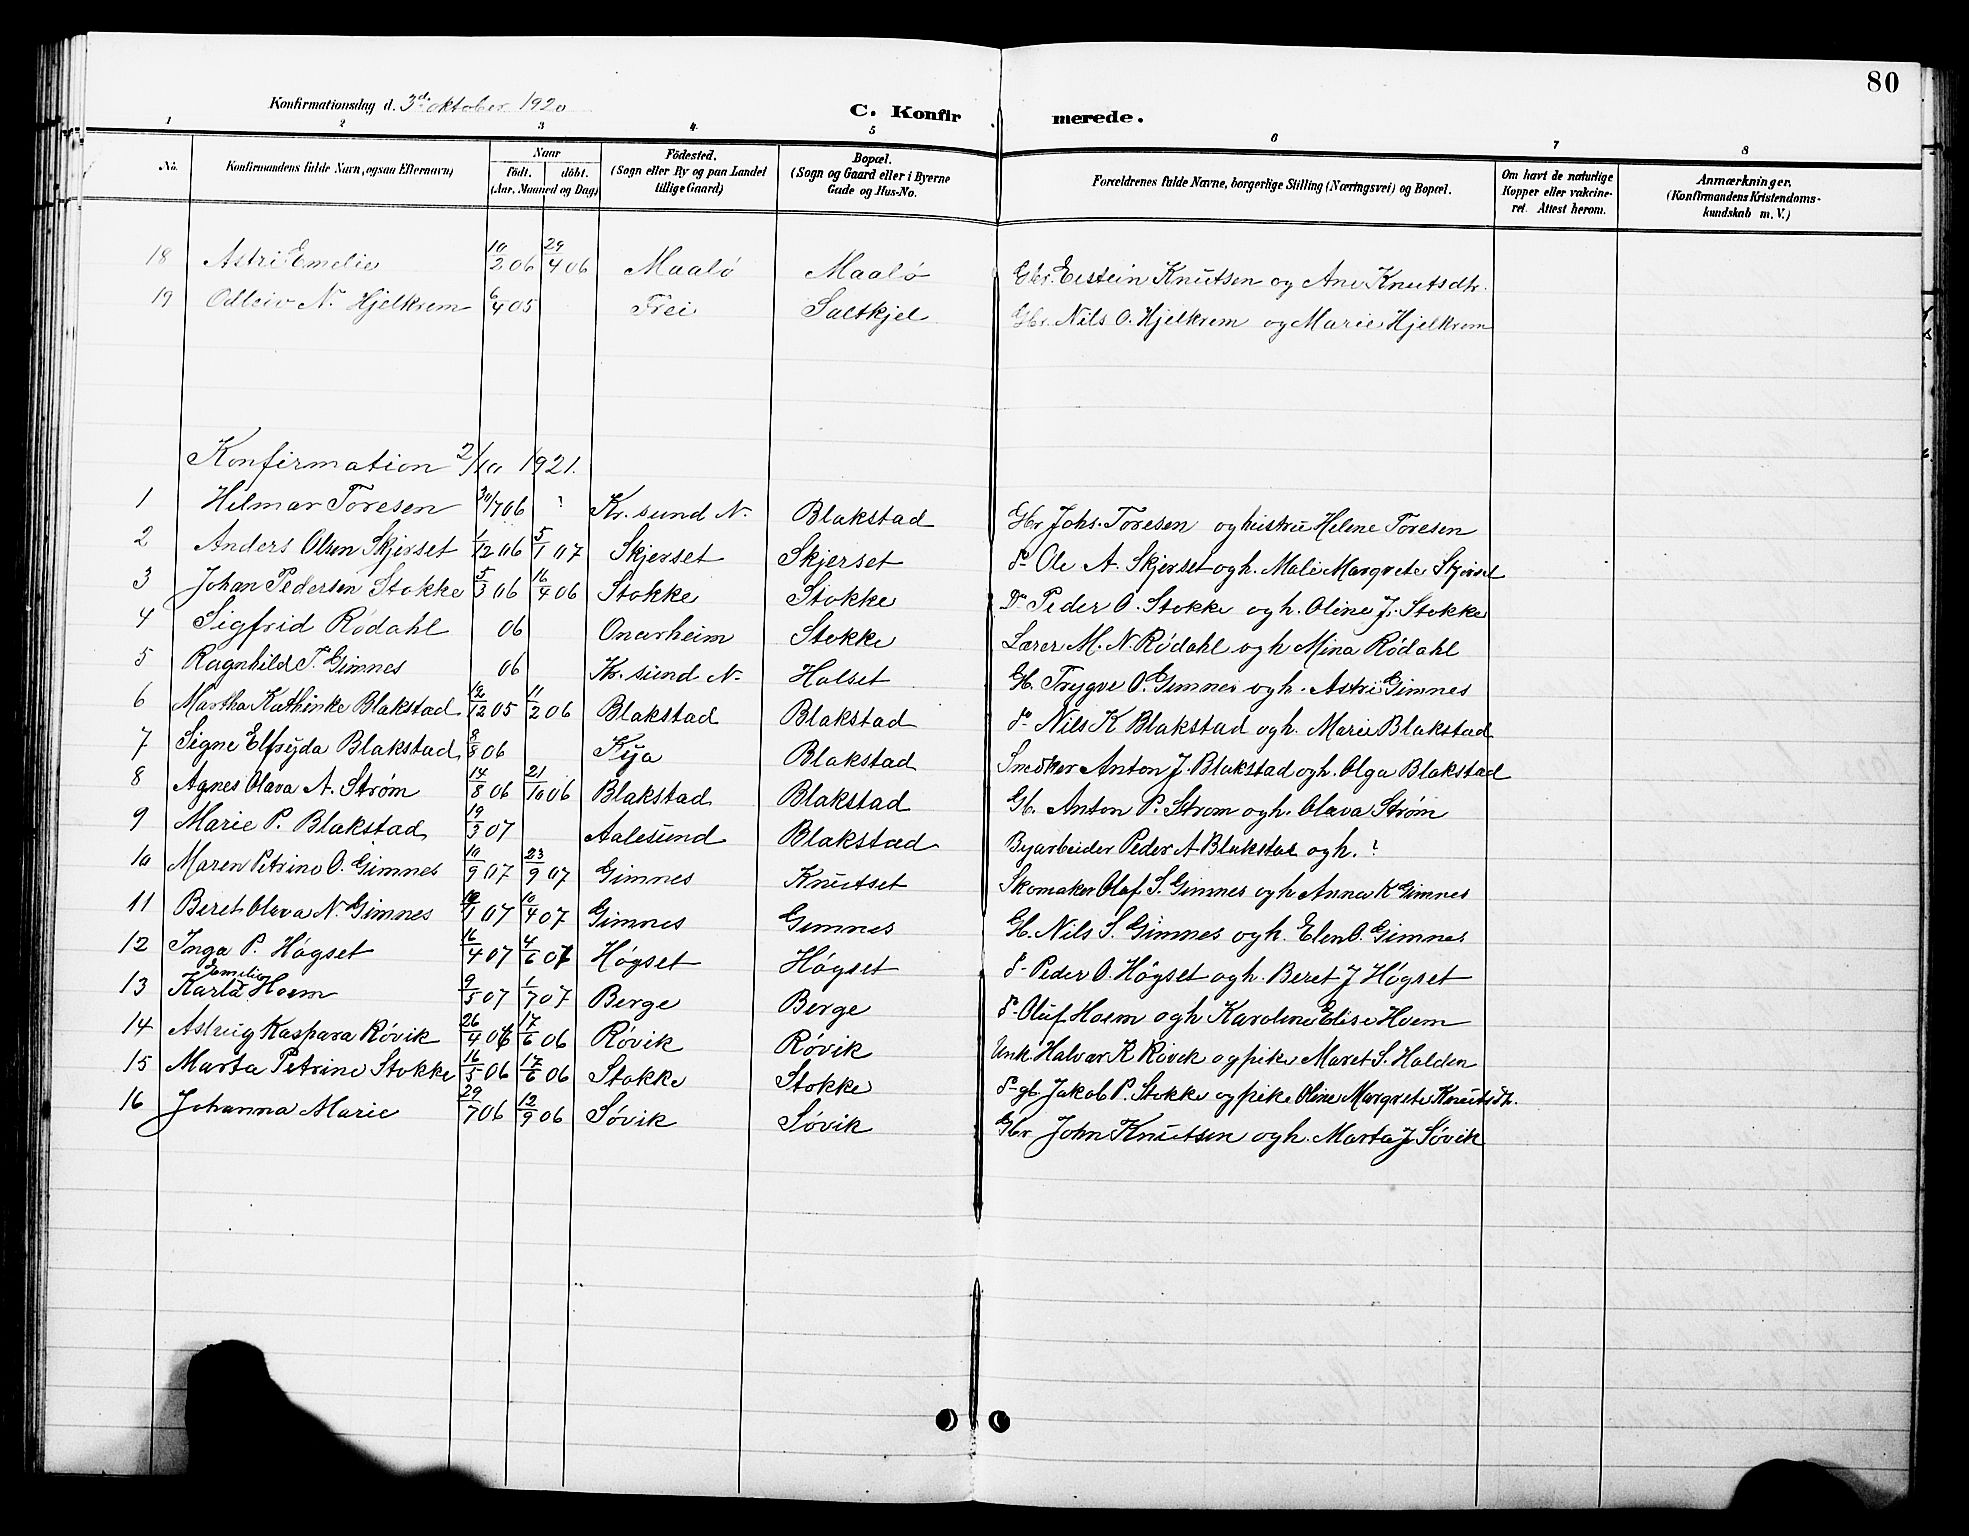 80
Konfirmationsdag d. 3d. oktober 1920
C. Konfirmerede.
1 2 3 4. 5 6 7 8
No. Konfirmandens fulde Navn, ogsaa Efternavn) Naar födt. döbt. (Aar, Maaned og Dag) Födested. (Sogn eller By og paa Landet tillige Gaard) Bopæl. (Sogn og Gaard eller i Byerne Gade og Hus-No. Forældrenes fulde Navne, borgerlige Stilling (Næringsvei) og Bopæl. Om havt de naturlige Kopper eller vakcineret. Attest herom. Anmærkninger. (Konfirmandens Kristendomskundskab m. V.)
18 Astri Emelie 10/2 06 29/4 06 Maalö Maalö Gbr. Eistein Knutsen og Ane Knutsdtr.
19 Odleiv N. Hjelkrem 6/4 05 Frei Saltkjel Gbr. Nils O. Hjelkrem og Marie Hjelkrem
Konfirmation 2/10 1921.
1 Hilmar Toresen 30/7 06 ? Kr. sund N. Blakstad Gbr Johs. Toresen og hustru Helene Toresen
2 Anders Olsen Skjerset 1/12 06 5/1 07 Skjerset Skjerset do Ole A. Skjerset og h. Mali Margrete Skjerset
3 Johan Pedersen Stokke 5/3 06 16/4 06 Stokke Stokke Do Peder O. Stokke og h. Oline J. Stokke
4 Sigfrid Rödahl 06 Onarheim Stokke Lærer M. N. Rödahl og h Mina Rödahl
5 Ragnhild T. Gimnes 06 Kr. sund N. Halset Gb. Trygve O. Gimnes og h. Astri Gimnes
6 Martha Kathinke Blakstad 12/12 05 11/2 06 Blakstad Blakstad do Nils K Blakstad og h. Marie Blakstad
7 Signe Elfryda Blakstad 8/8 06 Kya Blakstad Snedker Anton J. Blakstad og h. Olga Blakstad
8 Agnes Olava A. Strøm 14/8 06 21/10 06 Blakstad Blakstad Gb. Anton P. Strøm og h. Olava Strøm
9 Marie P. Blakstad 19/3 07 Aalesund Blakstad Byarbeider Peder A Blakstad og h. ?
10 Maren Petrine O. Gimnes 10/9 07 23/9 07 Gimnes Knutset Skomaker Olaf S. Gimnes og h Anna K Gimnes
11 Beret Olava N. Gimnes /1 07 10/4 07 Gimnes Gimnes Gb. Nils S. Gimnes og h. Elen O. Gimnes
12 Inga P. Högset 16/4 07 4/6 07 Högset Högset do Peder O. Högset og h. Beret J Högset
13 Karla Emelie Hoem 9/5 07 1/7 07 Berge Berge do Oluf Hoem og h Karoline Elise Hoem
14 Astrug Kaspara Rövik 26/4 06 17/6 06 Rövik Rövik Unk. Halvar K Rövik og pike Maret S. Halden
15 Marta Petrine Stokke 16/5 06 17/6 06 Stokke Stokke S. gb. Jakob P. Stokke og pike Oline Margrete Knutsdtr.
16 Johanna Marie 29/7 06 12/9 06 Søvik Søvik Gbr John Knutsen og h. Marta J Søvik